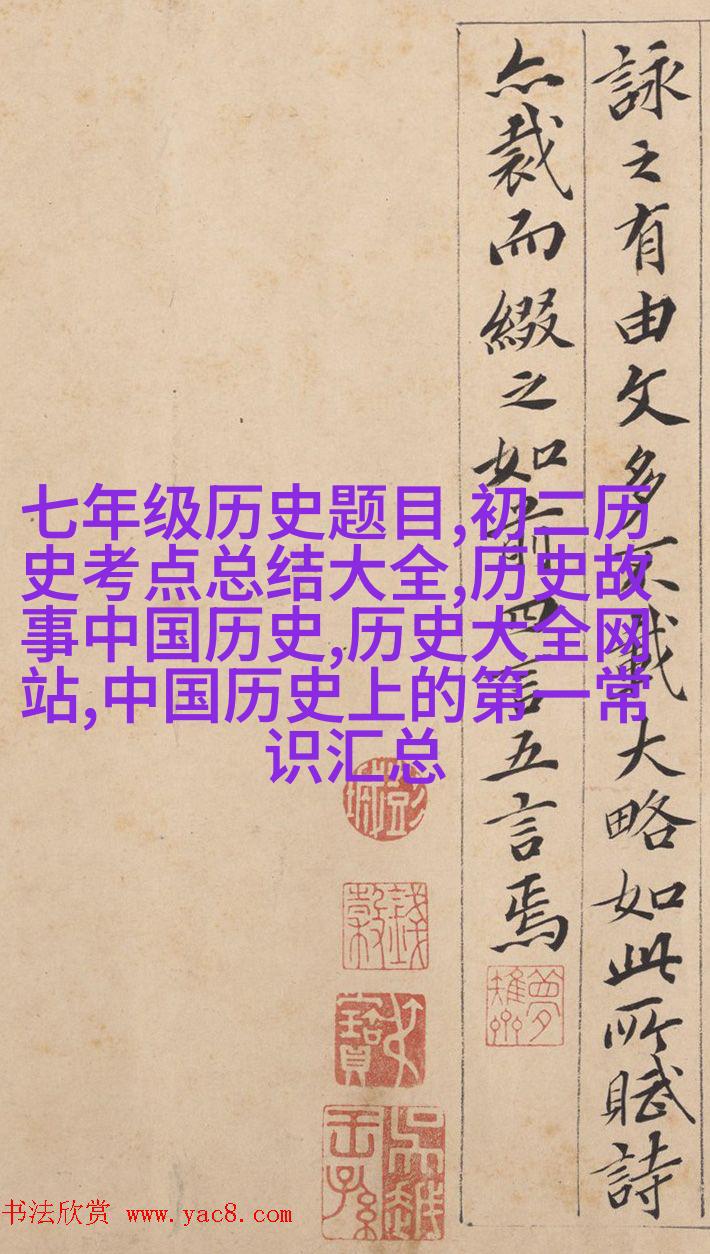 詠之有由文多不載大略如此所賦詩
亦裁而綴之如前四言五言焉
七年级历史题目,初二历
史考点总结大全,历史故
事中国历史,历史大全网
站,中国历史上的第一常
识汇总
书法欣赏 www.yac8.com